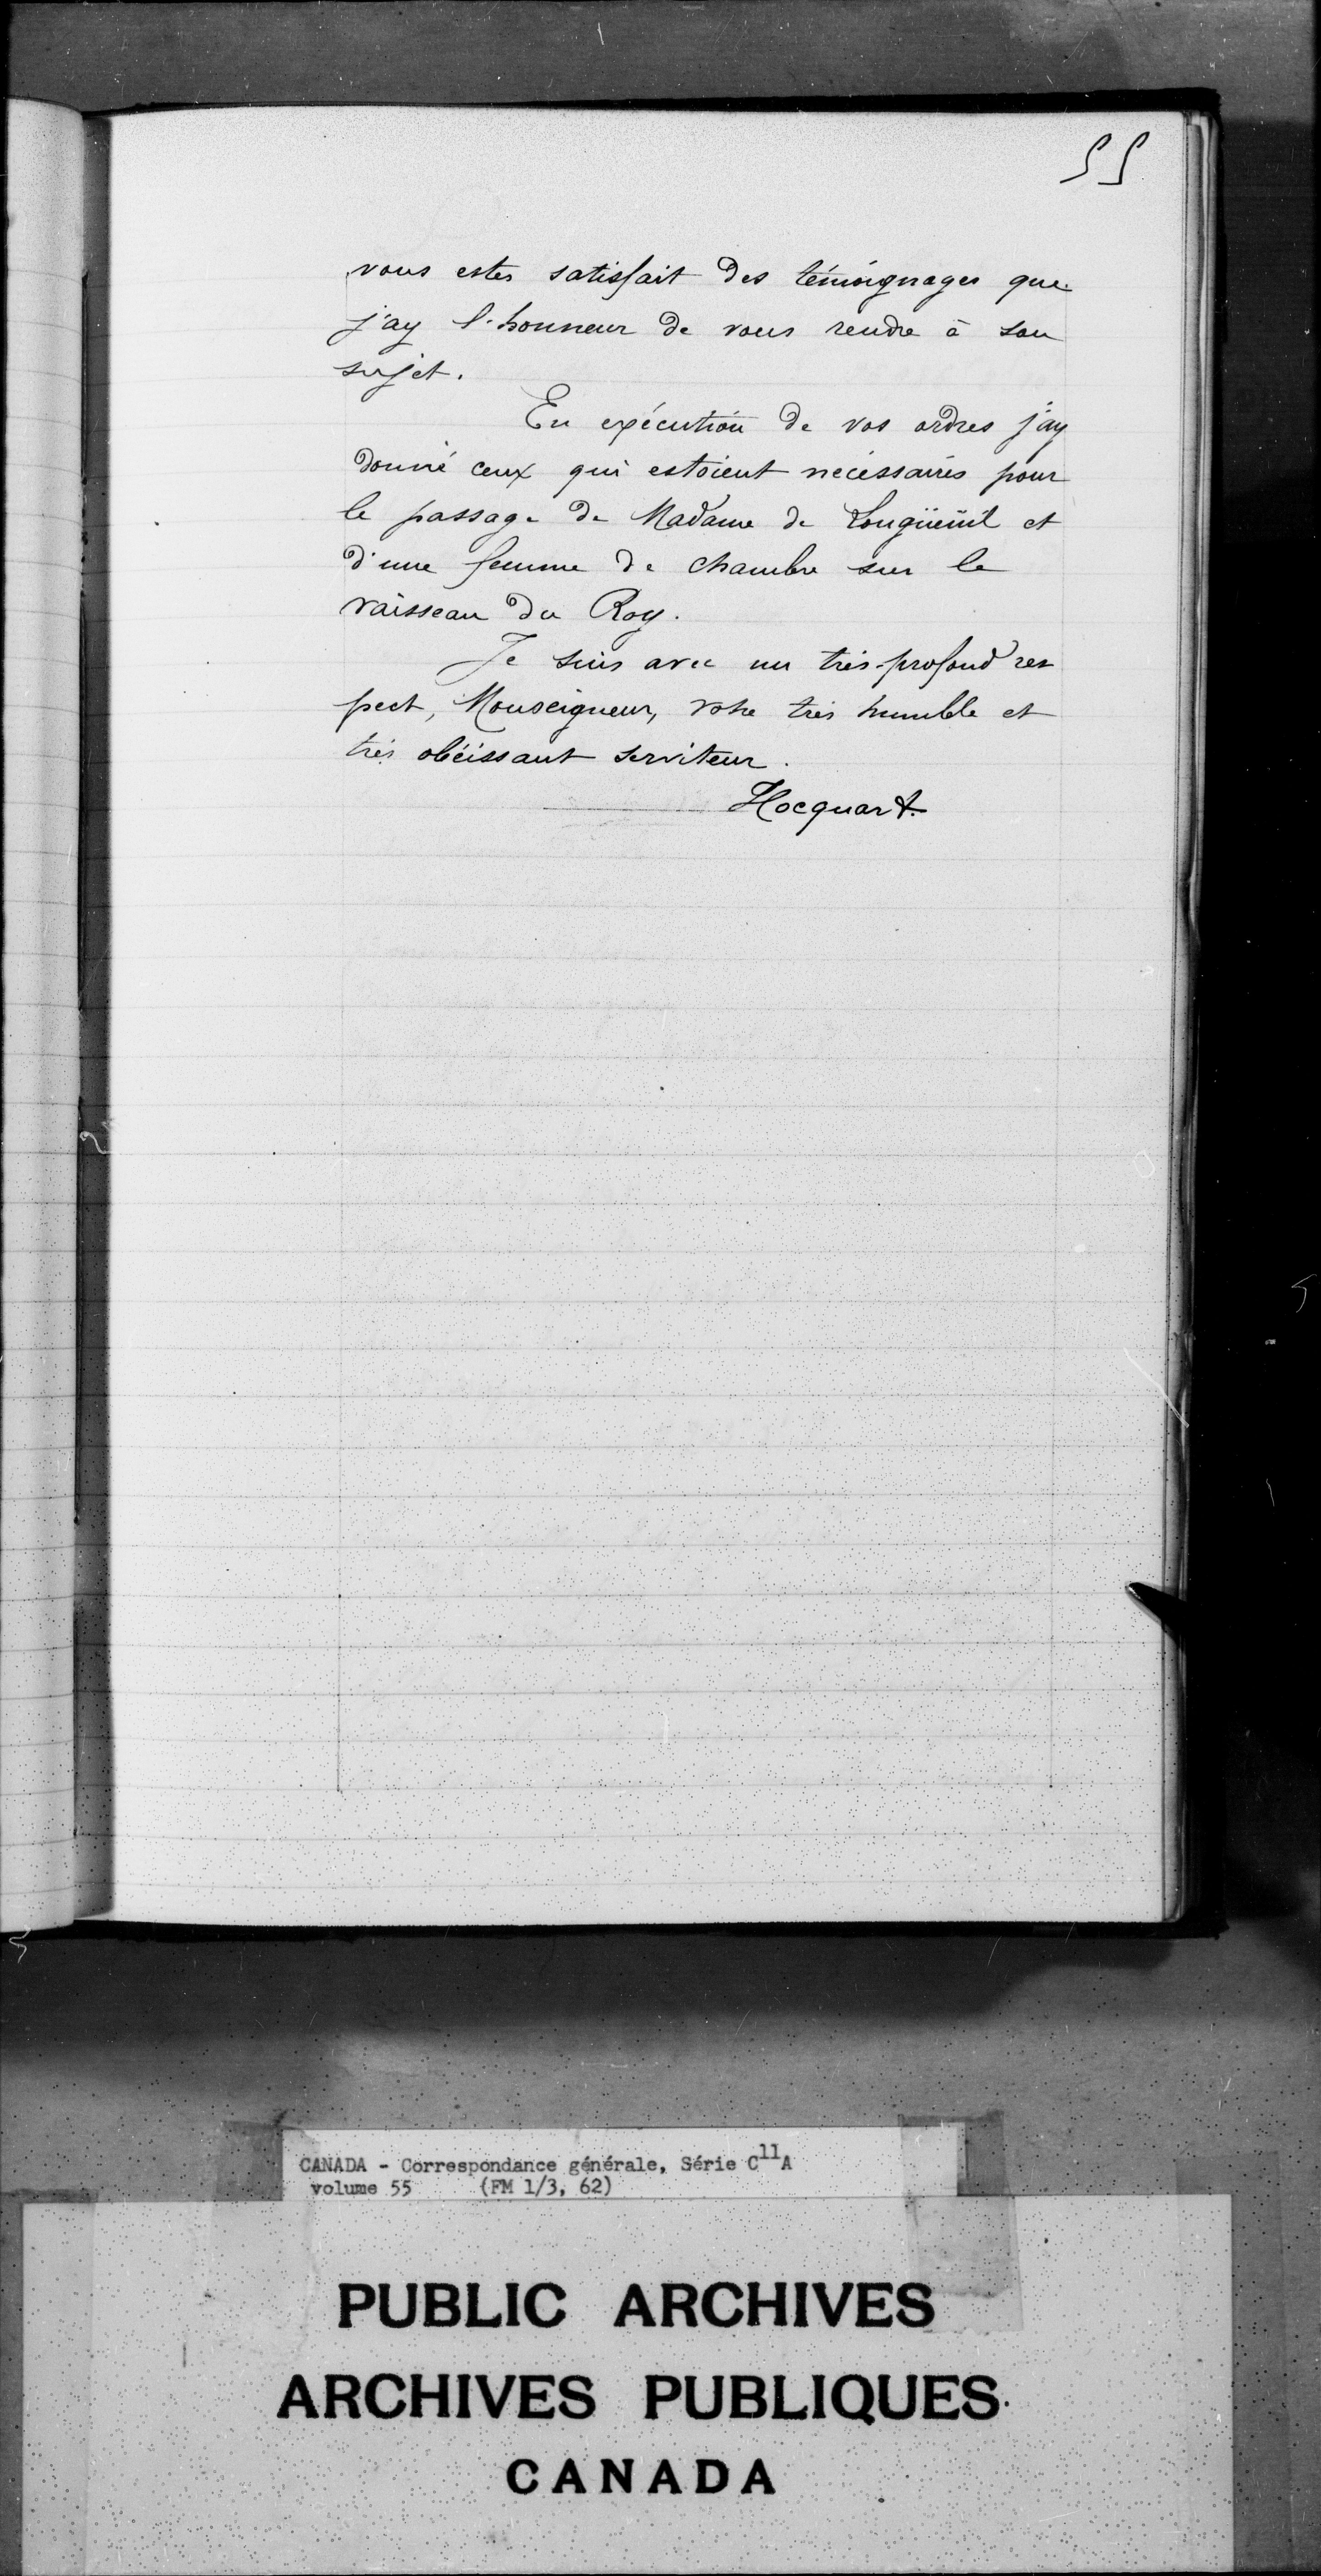 55
vous estes satisfait des témoignages que
j'ay l'honneur de vous rendre à son
sujet.
En exécution de vos ordres j'ay
donné ceux qui estoient nécessaires pour
le passage de Madame de Longüeüil et
d'une femme de chambre sur le
vaisseau du Roy.
Je suis avec un très-profond res
pect, Monseigneur, votre très humble et
très obéissant serviteur.
Hocquart.
CANADA - Correspondance générale, Série C11A
volume 55 (FM 1/3, 62)
PUBLIC ARCHIVES
ARCHIVES PUBLIQUES
CANADA